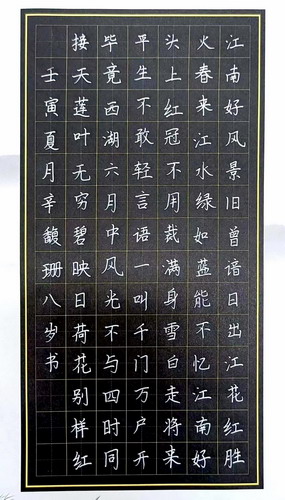 江南好风景旧曾谙日出江花红胜
火春来江水绿如蓝能不忆江南好
头上红冠不用裁满身雪白走将来
平生不敢轻言语一叫千门万户开
毕竟西湖六月中风光不与四时同
接天莲叶无穷碧映日荷花别样红
壬寅夏月辛馥珊八岁书